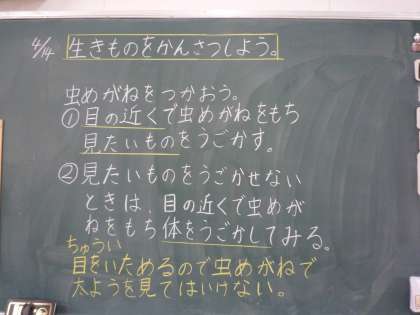 4/14 生きものをかんさつしよう。
虫めがねをつかおう。
①目の近くで虫めがねをもち
見たいものをうごかす。
②見たいものをうごかせない
ときは、目の近くで虫めが
ねをもち体をうごかしてみる。
ちゅうい
目をいためるので虫めがねで
太ようを見てはいけない。